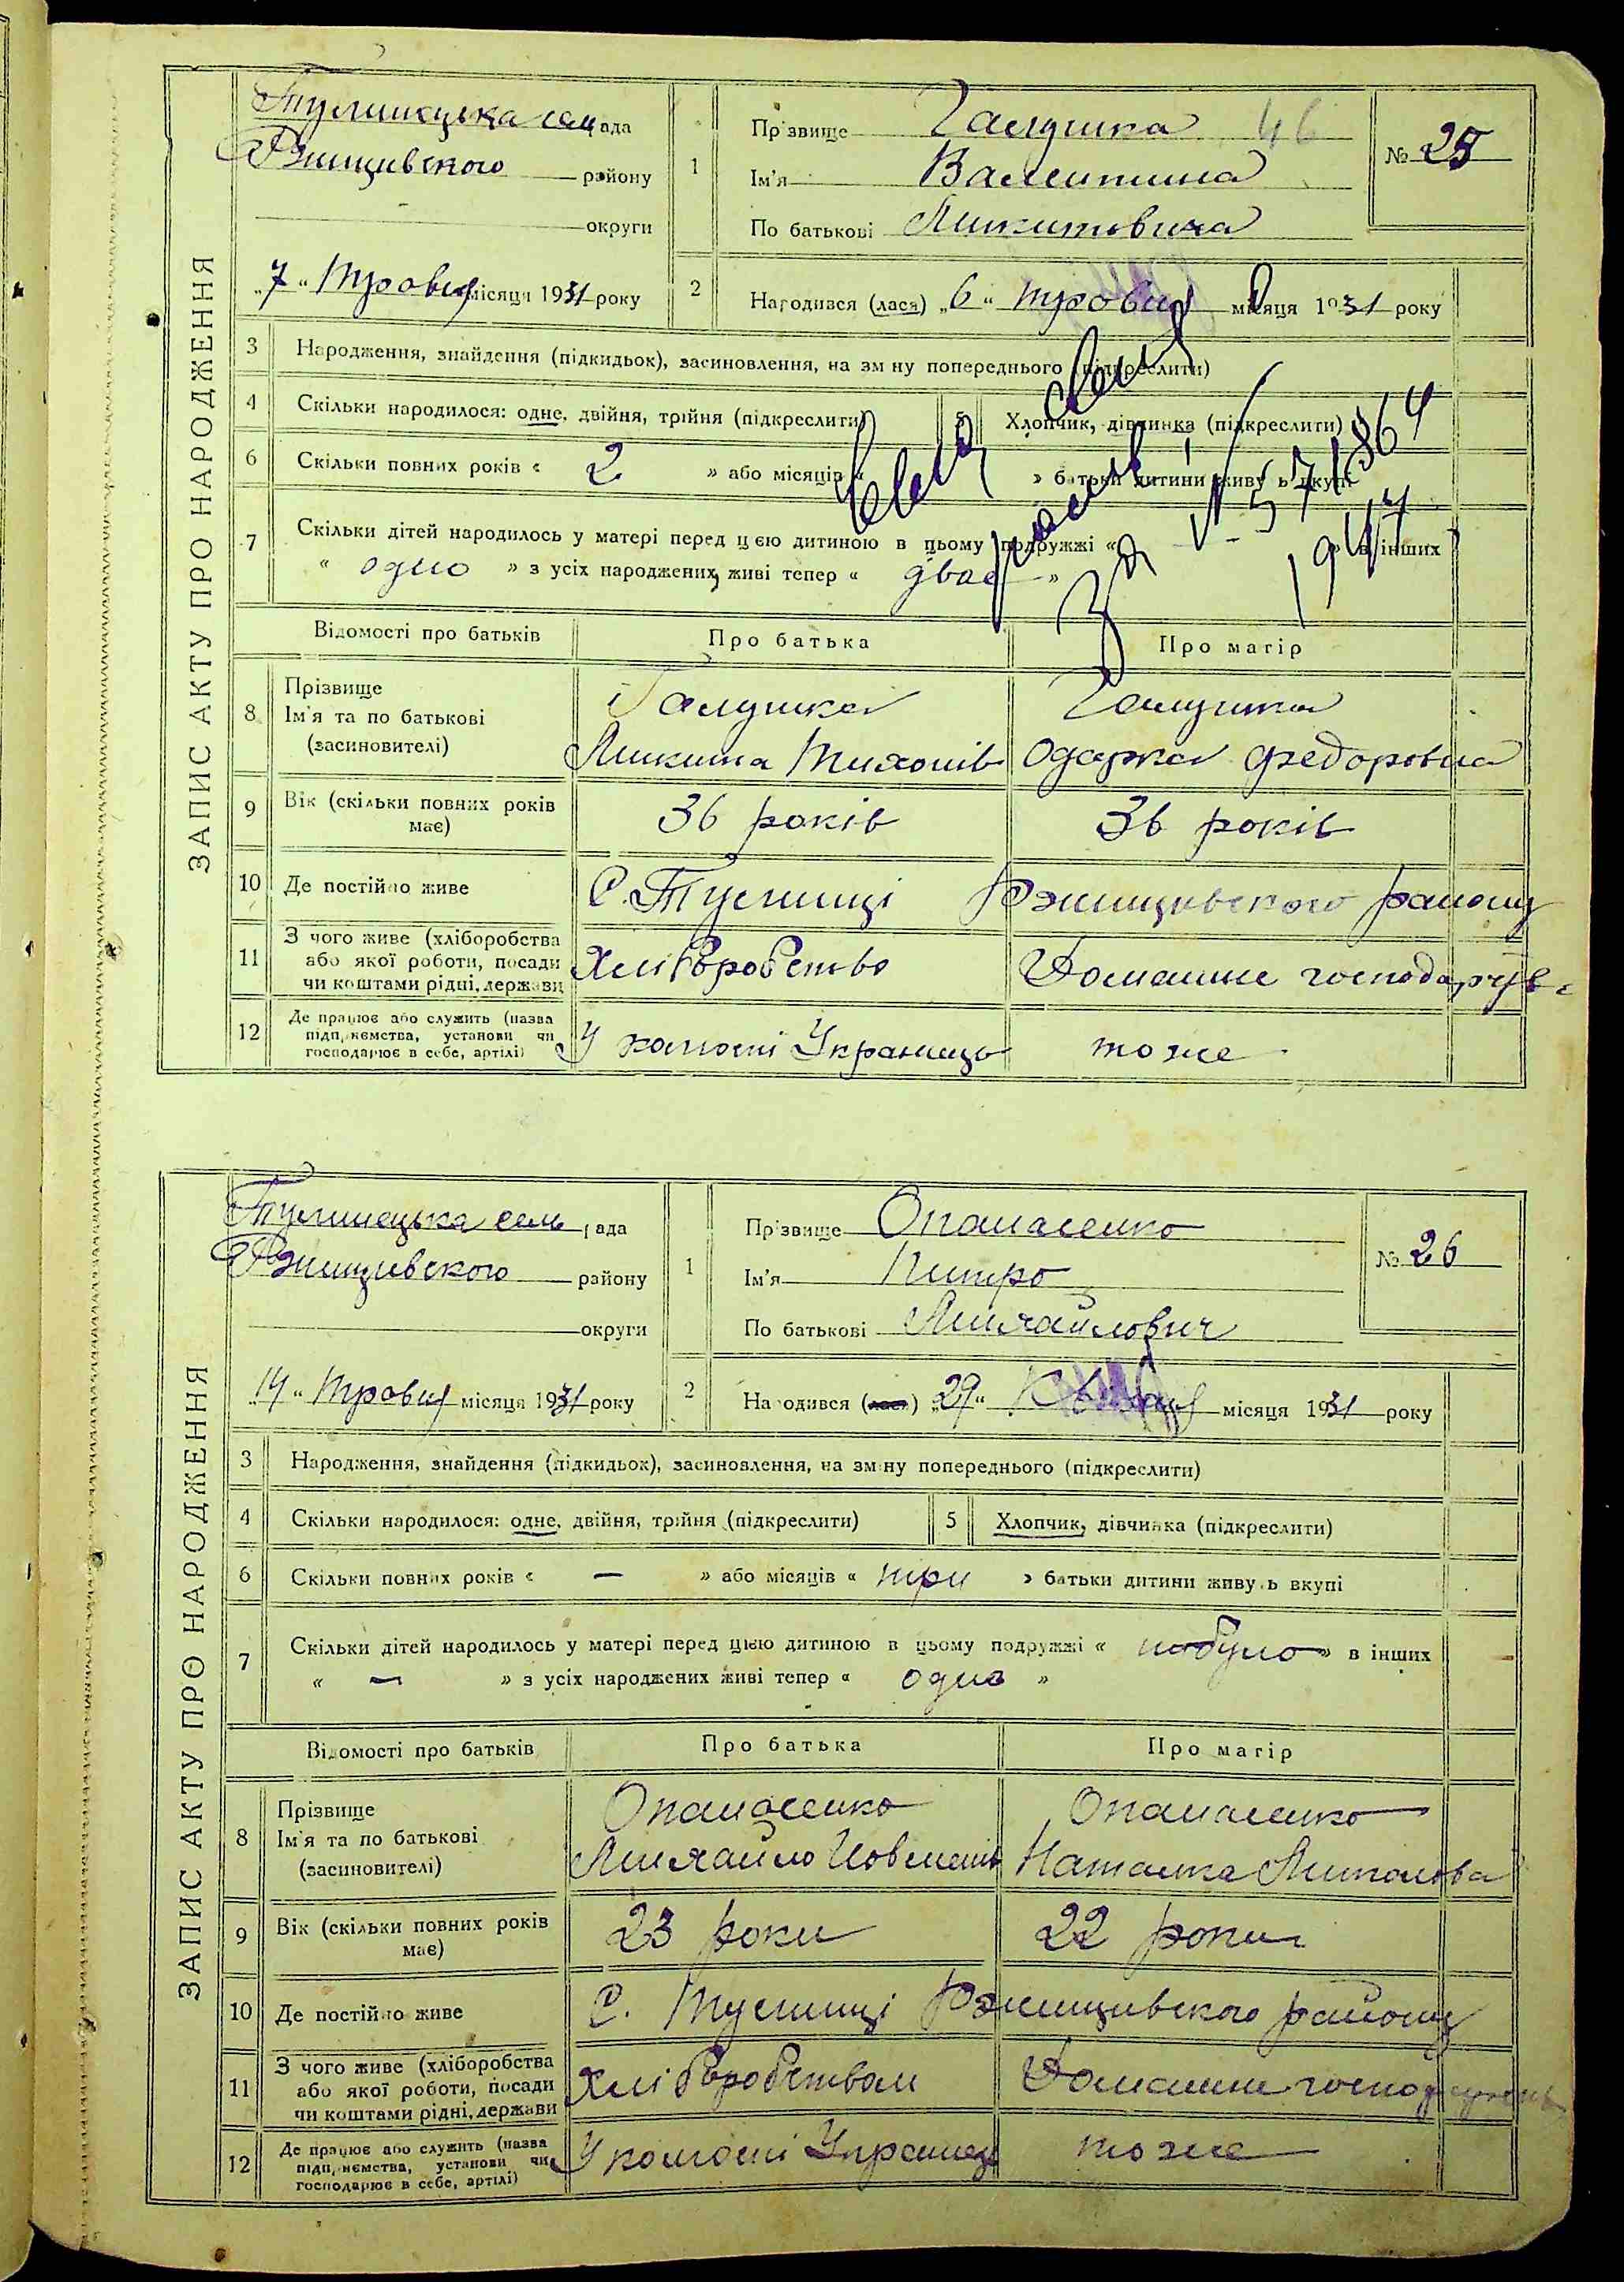 ЗАПИС АКТУ ПРО НАРОДЖЕННЯ
Тулинецька сельрада
Ржищивского району
округи
"7" Травня місяця 1931 року
1
Прізвище Галушка 46
Ім'я Валентина
По батькові Микитовича
№ 25
2
Народився (лася) "6" травня місяця 1931 року
3 Народження, знайдення (підкидьок), засиновлення, на зміну попереднього (підкреслити)
4 Скільки народилося: одне, двійня, трійня (підкреслити)
5 Хлопчик, дівчинка (підкреслити)
6 Скільки повних років « 2 » або місяців « » батьки дитини живуть вкупі
7 Скільки дітей народилось у матері перед цією дитиною в цьому подружжі « » в інших
« одно » з усіх народжених живі тепер « двоє »
1864
1947
Відомості про батьків Про батька Про матір
8 Прізвище Ім'я та по батькові (засиновителі)
Галушка Галушка
Микита Тихонів Одарка Федоровна
9 Вік (скільки повних років має) 36 років 36 років
10 Де постійно живе С. Тулинці Ржищивского району
11 З чого живе (хліборобства або якої роботи, посади чи коштами рідні, держави
Хліборобство Домашне господарств
12 Де працює або служить (назва підприємства, установи чи господарює в себе, артілі)
У колгоспі Українець тоже
ЗАПИС АКТУ ПРО НАРОДЖЕННЯ
Тулинецька сельрада
Ржищивского району
округи
"14" Травня місяця 1931 року
1
Прізвище Опанасенко
Ім'я Питро
По батькові Михайлович
№ 26
2
Народився (лася) "29" Квітня місяця 1931 року
3 Народження, знайдення (підкидьок), засиновлення, на зміну попереднього (підкреслити)
4 Скільки народилося: одне, двійня, трійня (підкреслити)
5 Хлопчик, дівчинка (підкреслити)
6 Скільки повних років « — » або місяців « три » батьки дитини живуть вкупі
7 Скільки дітей народилось у матері перед цією дитиною в цьому подружжі « небуло » в інших
« — » з усіх народжених живі тепер « одно »
Відомості про батьків Про батька Про матір
8 Прізвище Ім'я та по батькові (засиновителі)
Опанасенко Опанасенко
Михайло Наталка
9 Вік (скільки повних років має) 23 роки 22 роки
10 Де постійно живе С. Тулинці Ржищивского району
11 З чого живе (хліборобства або якої роботи, посади чи коштами рідні, держави
Хліборобством Домашне
12 Де працює або служить (назва підприємства, установи чи господарює в себе, артілі)
У колгоспі Українець тоже